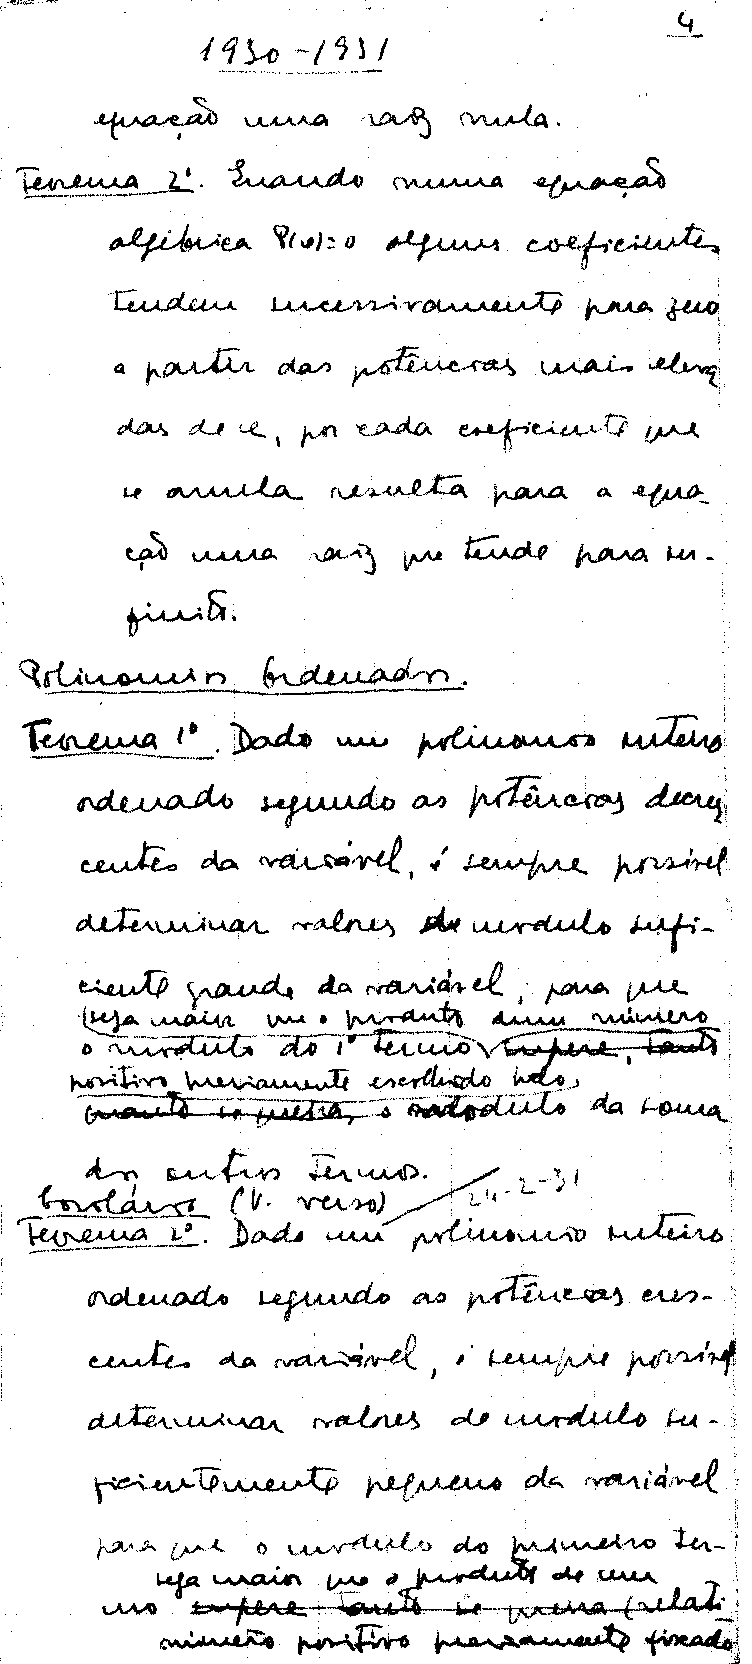 4
1930-1931
equação uma raiz nula.
Teorema 2º. Quando numa equação
algébrica P(x)=0 alguns coeficientes
tendem sucessivamente para zero
a partir das potências mais eleva
das de x, por cada coeficiente que
se anula resulta para a equa-
ção uma raiz que tende para in-
finito.
Polinomios Ordenados.
Teorema 1º. Dado um polinomio inteiro
ordenado segundo as potências decres
centes da variável, é sempre possivel
determinar valores de modulo sufi-
ciente grande da variável, para que
seja maior que o produto dum número
o modulo do 1º termo supere, tanto
positivo previamente escolhido pelo,
quanto se queira, o modulo da soma
dos outros termos.
Corolário (V. verso) 24-2-31
Teorema 2º. Dado um polinomio inteiro
ordenado segundo as potências cres-
centes da variável, é sempre possivel
determinar valores de modulo su-
ficientemente pequeno da variável
para que o modulo do primeiro ter-
seja maior que o produto de um
mo supere tanto se queira (relati
número positivo previamente fixado